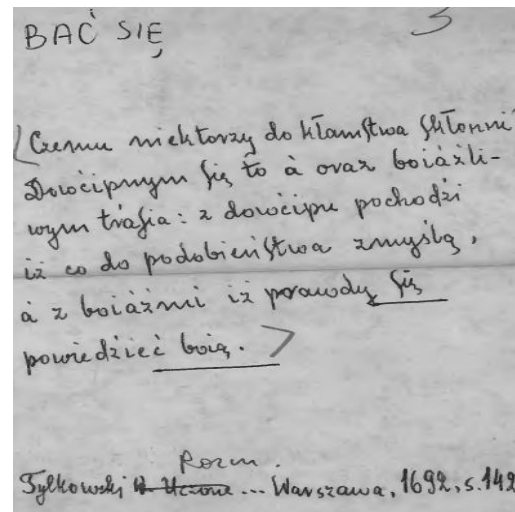 BAĆ SIĘ 3
⟨Czemu niektorzy do kłamſtwa ſkłonni
Dowćipnym ſię to à oraz boiáźli-
wym tráfia: z dowćipu pochodźi
iż co do podobieńſtwa zmyślą,
à z boiáźni iż prawdy ſię
powiedźieć boią.⟩
Rozm.
Tylkowski U. Uczone ... Warszawa, 1692, s. 142